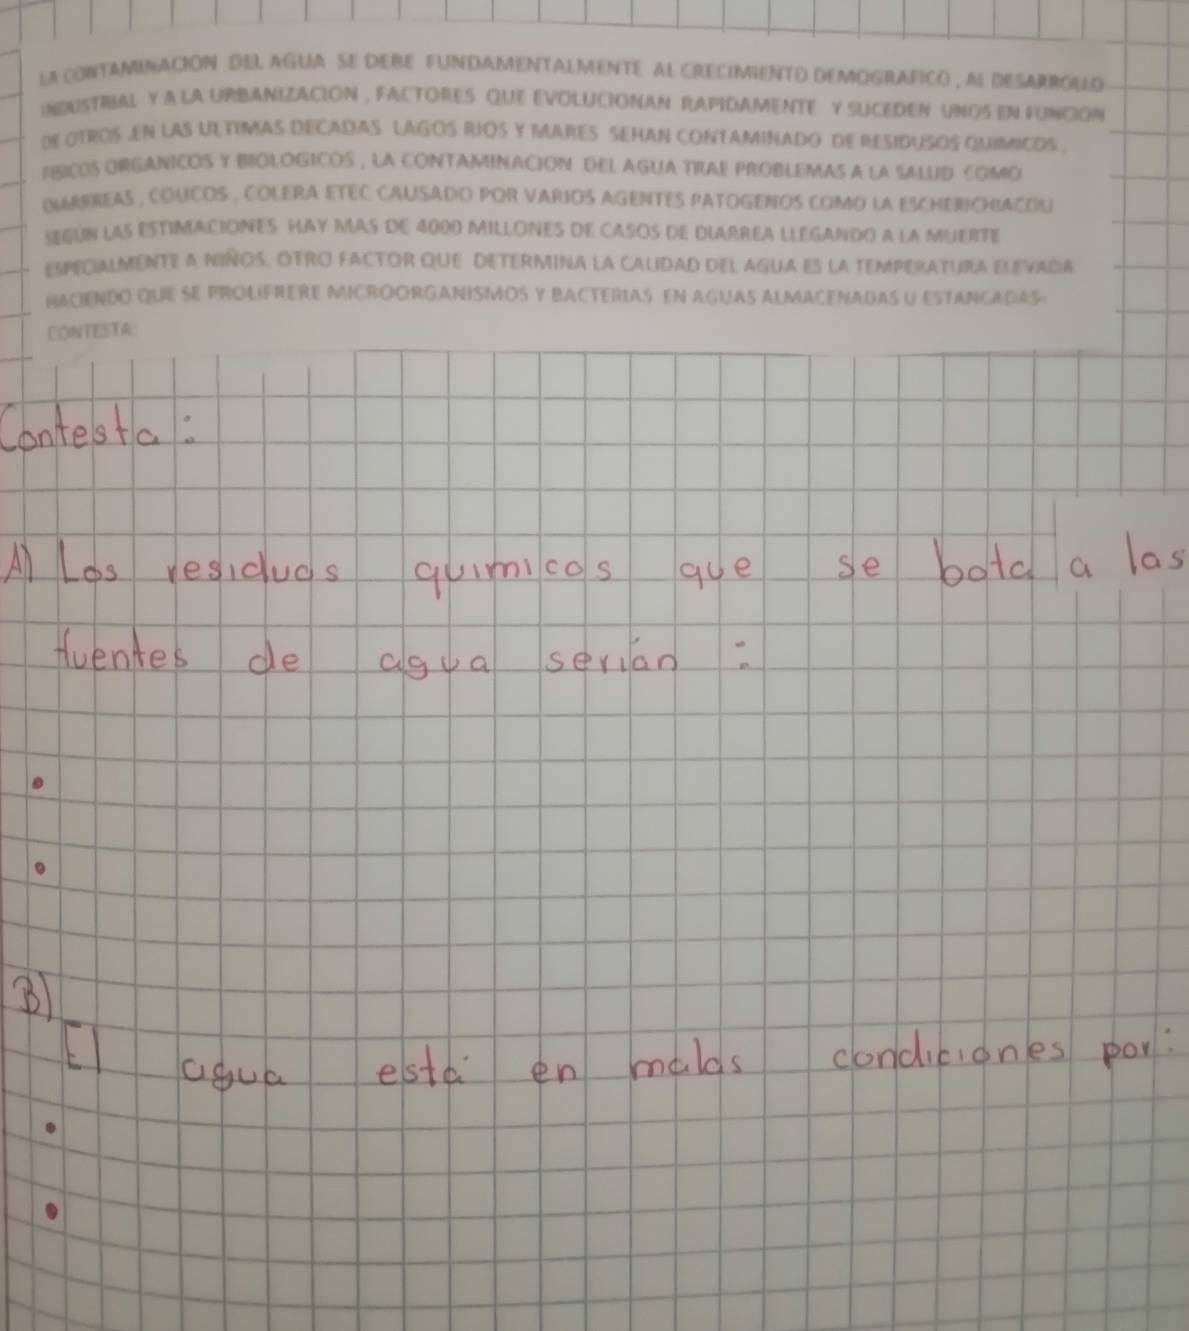 LA CONTAMINACION DEL AGUA SE DEBE FUNDAMENTALMENTE AL CRECIMIENTO DEMOGRAFICO, AL DESARROLLO
INDUSTRIAL Y A LA URBANIZACION, FACTORES QUE EVOLUCIONAN RAPIDAMENTE Y SUCEDEN UNOS EN FUNCION
DE OTROS .EN LAS ULTIMAS DECADAS LAGOS RIOS Y MARES SEHAN CONTAMINADO DE RESIDUSOS QUIMICOS,
FISICOS ORGANICOS Y BIOLOGICOS, LA CONTAMINACION DEL AGUA TRAE PROBLEMAS A LA SALUD COMO
DIARRREAS, COLICOS, COLERA ETEC CAUSADO POR VARIOS AGENTES PATOGENOS COMO LA ESCHERICHIACOLI
SEGÚN LAS ESTIMACIONES HAY MAS DE 4000 MILLONES DE CASOS DE DIARREA LLEGANDO A LA MUERTE
ESPECIALMENTE A NIÑOS, OTRO FACTOR QUE DETERMINA LA CALIDAD DEL AGUA ES LA TEMPERATURA ELEVADA
HACIENDO QUE SE PROLIFRERE MICROORGANISMOS Y BACTERIAS EN AGUAS ALMACENADAS U ESTANCADAS-
CONTESTA:
Contesta:
A) Los residuos quimicos que se bota a las
fuentes de agua serían:
B)
El agua está en malas condiciones por: